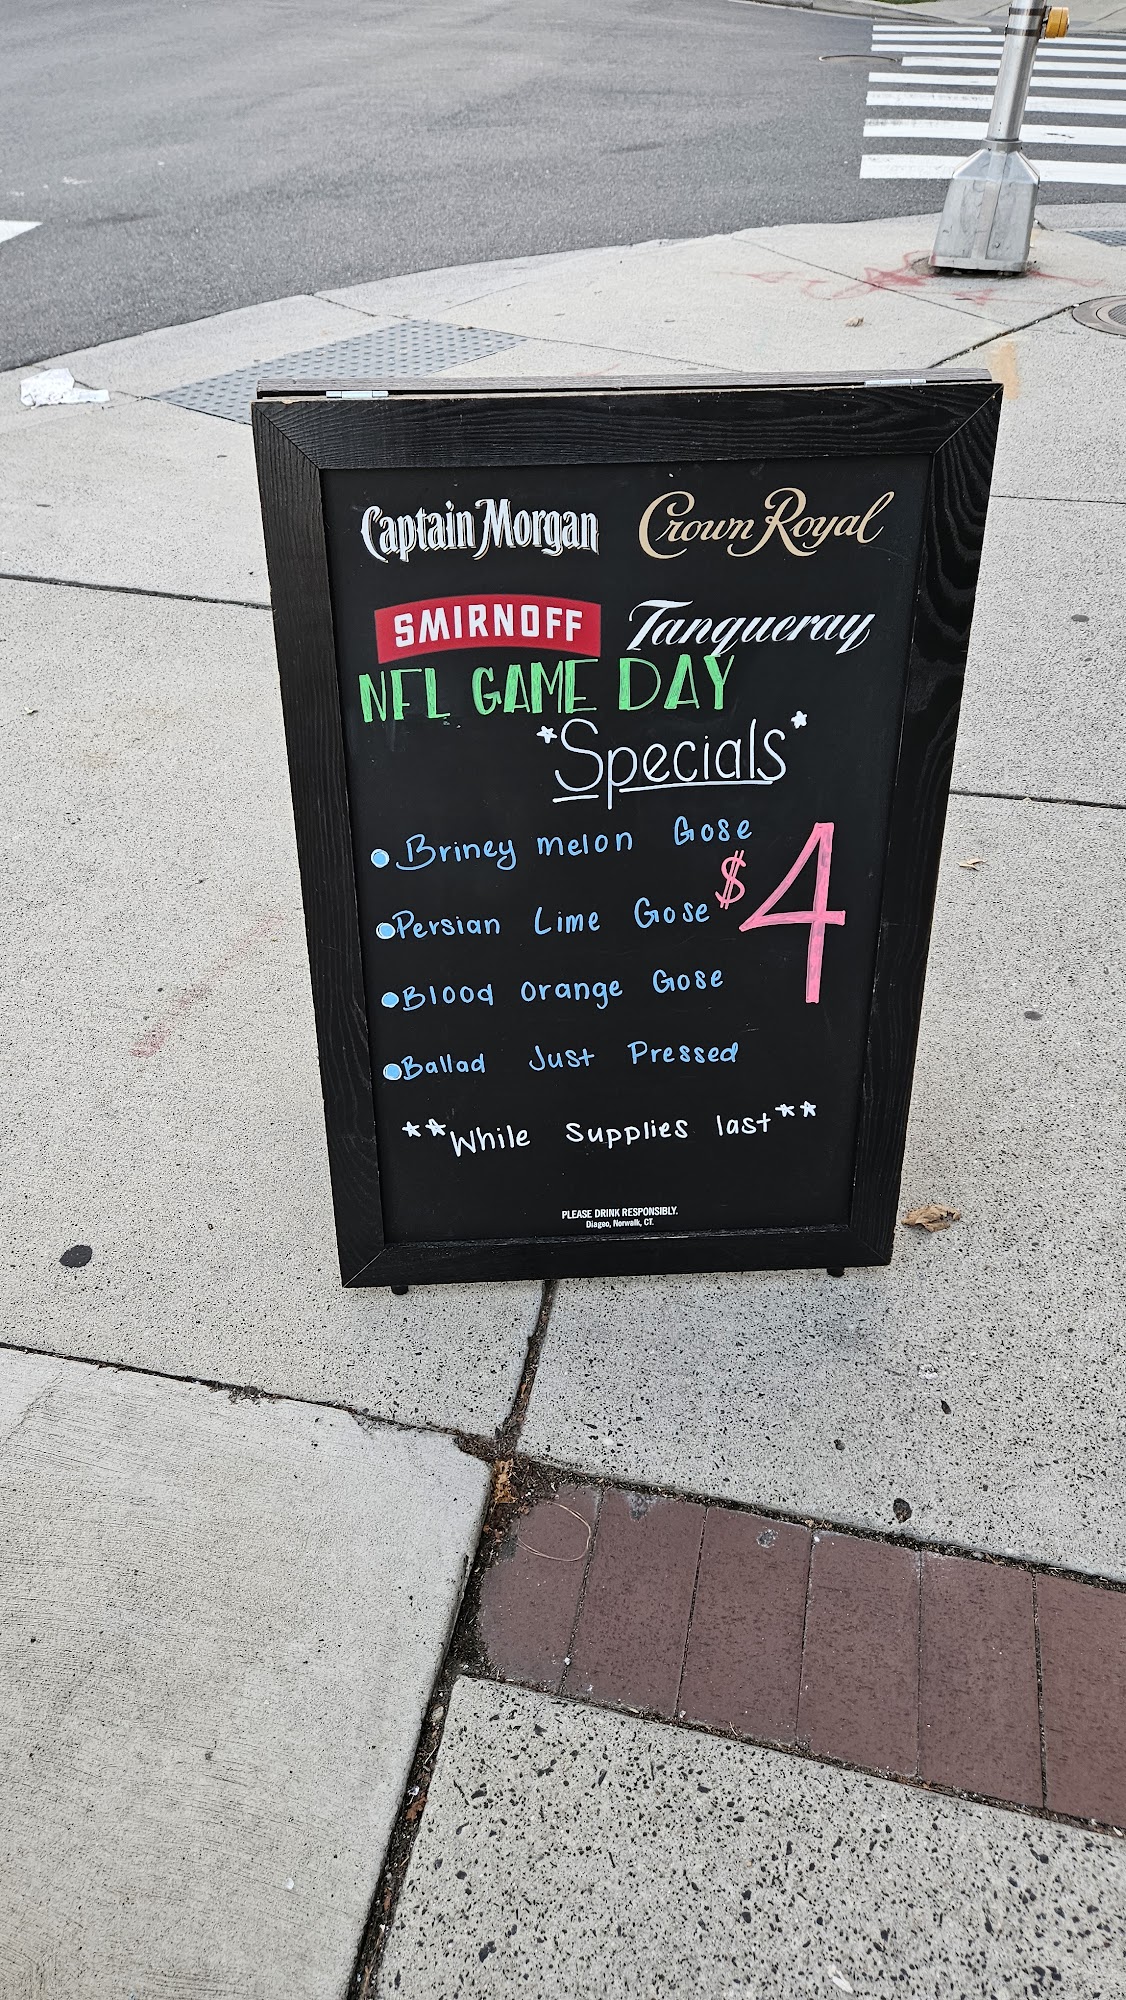 Captain Morgan Crown Royal
SMIRNOFF Tanqueray
NFL GAME DAY
*Specials*
• Briney melon Gose
$4
• Persian Lime Gose
• Blood orange Gose
• Ballad Just Pressed
**While supplies last**
PLEASE DRINK RESPONSIBLY.
Diageo, Norwalk, CT.